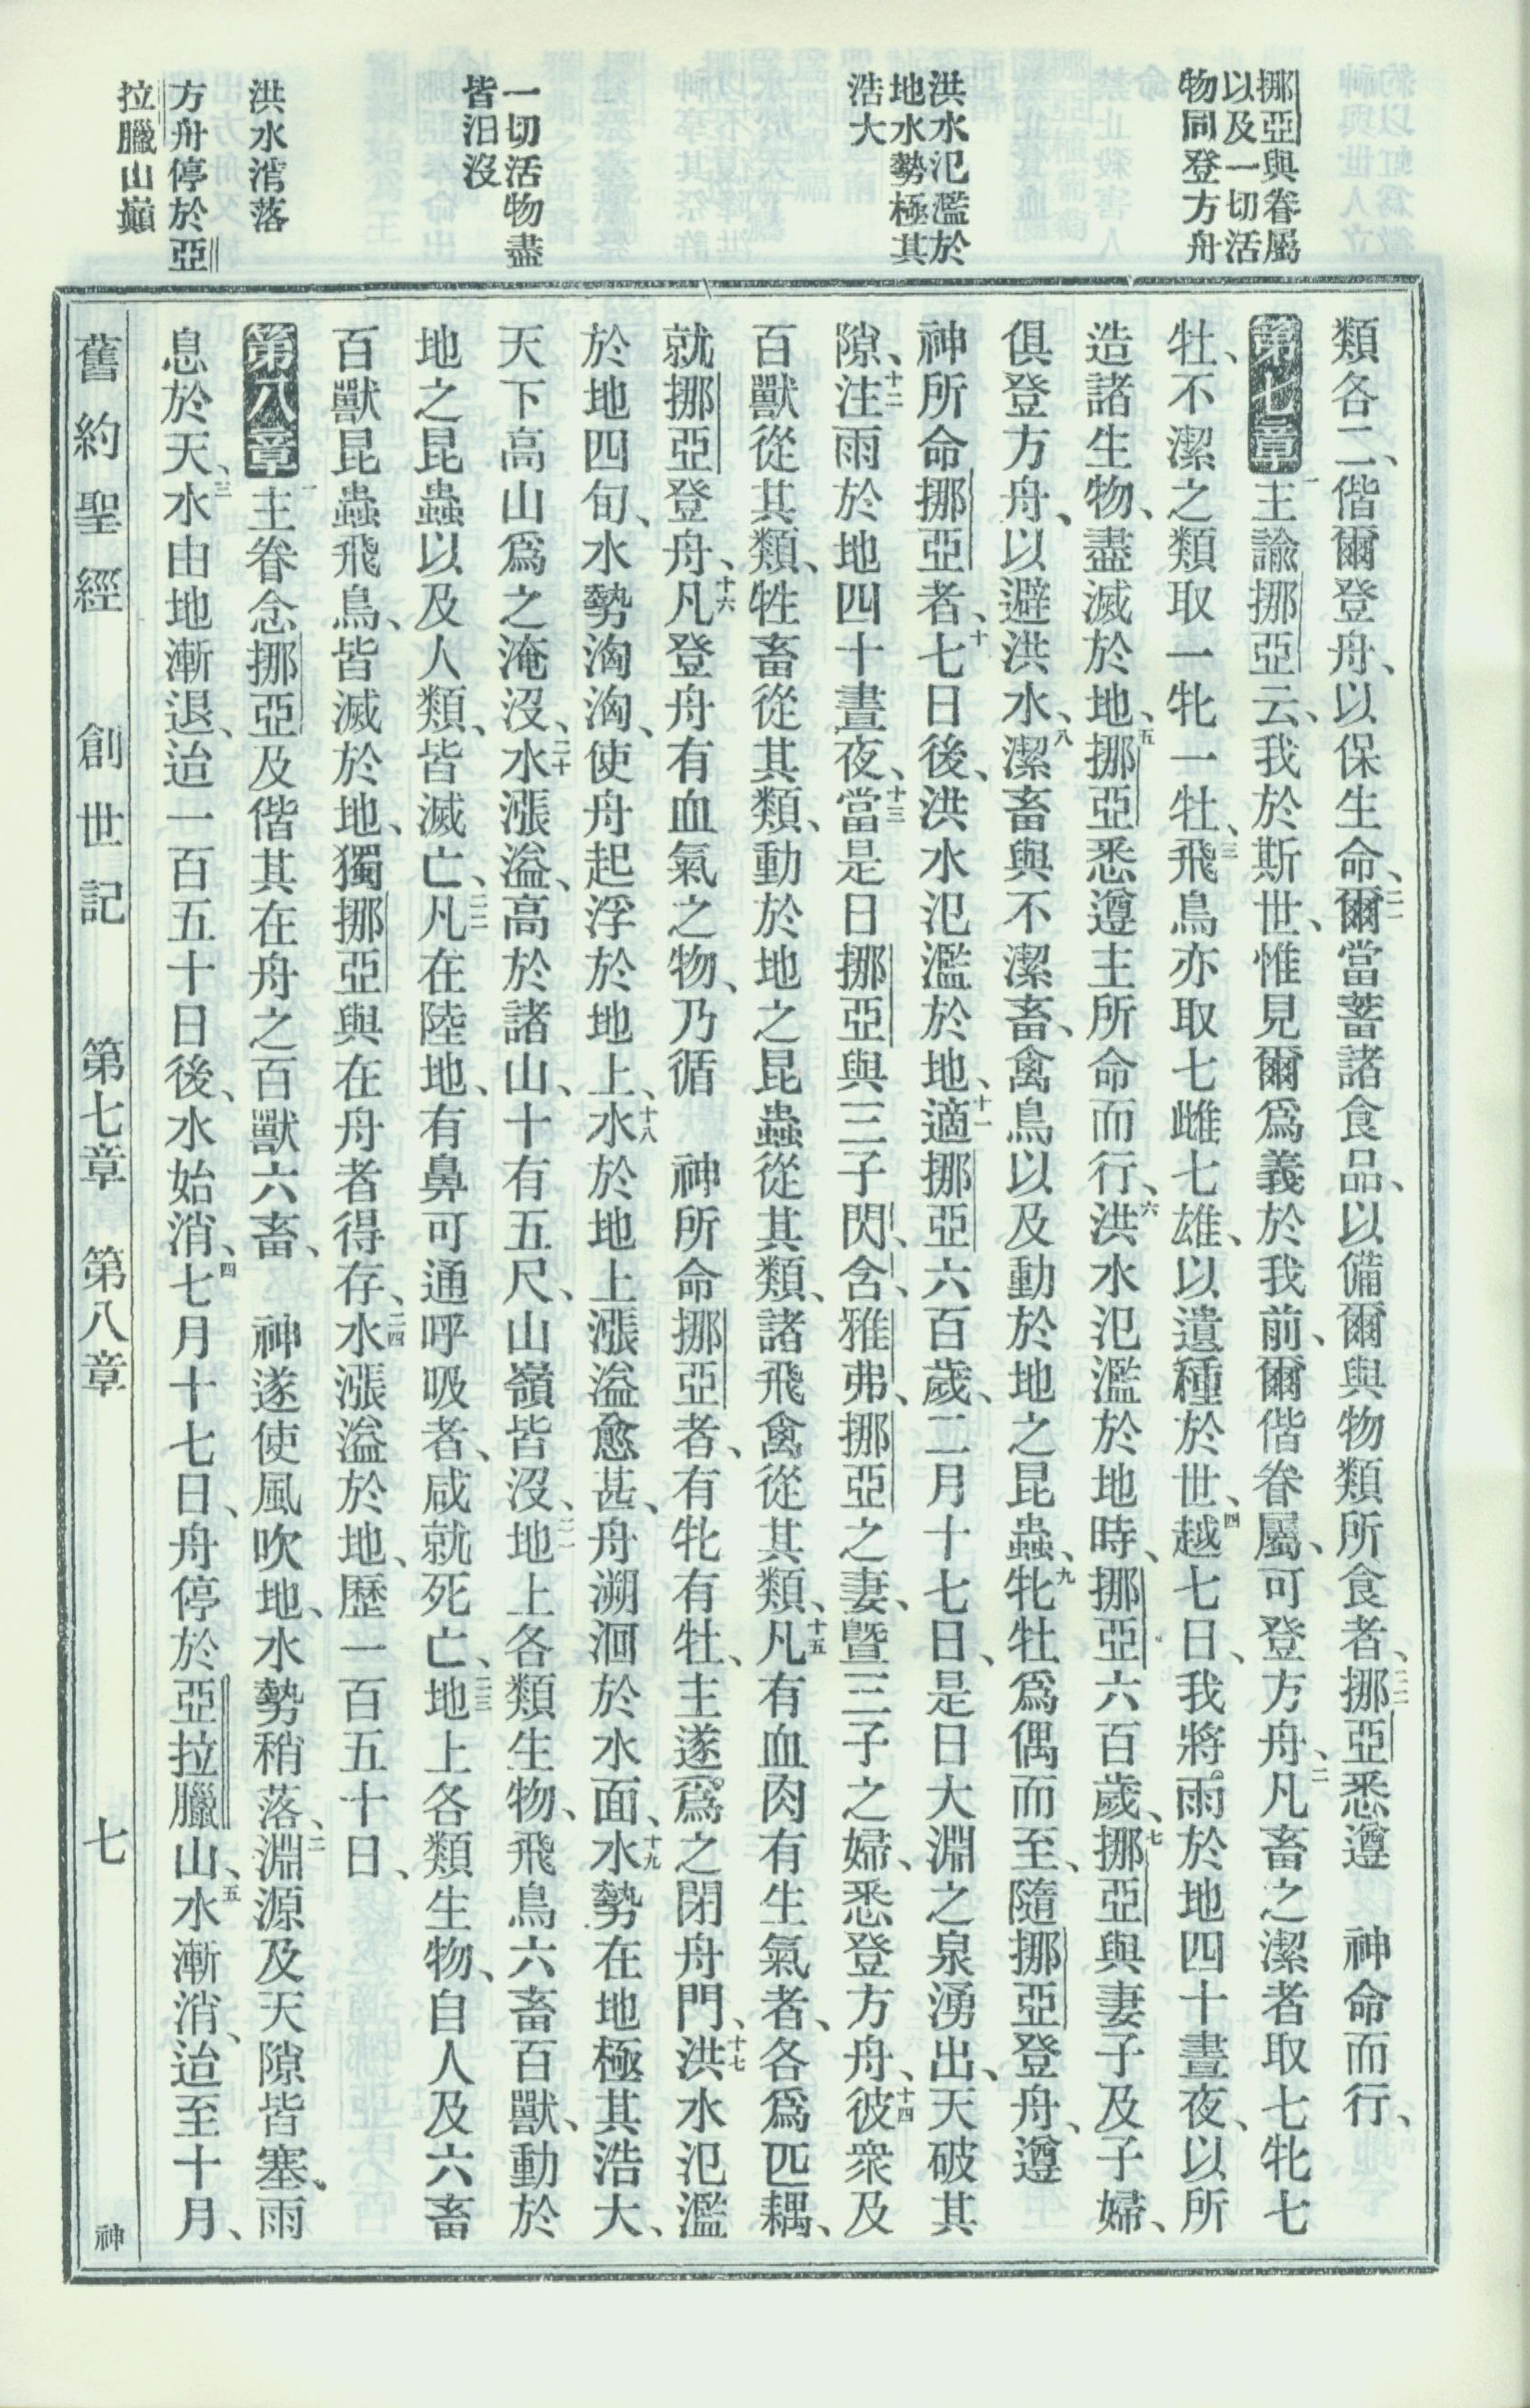 挪亞與眷屬
以及一切活
物同登方舟
洪水氾濫於
地水勢極其
浩大
一切活物盡
皆汩沒
洪水消落
方舟停於亞
拉臘山巔
類各二、偕爾登舟、以保生命、二一爾當蓄諸食品、以備爾與物類所食者、二二挪亞悉遵　神命而行、
第七章　一主諭挪亞云、我於斯世、惟見爾爲義於我前、爾偕眷屬、可登方舟、二凡畜之潔者取七牝七
牡、不潔之類取一牝一牡、三飛鳥亦取七雌七雄、以遺種於世、四越七日、我將雨於地四十晝夜、以所
造諸生物、盡滅於地、五挪亞悉遵主所命而行、六洪水氾濫於地時、挪亞六百歲、七挪亞與妻子及子婦、
俱登方舟、以避洪水、八潔畜與不潔畜、禽鳥以及動於地之昆蟲、九牝牡爲偶而至、隨挪亞登舟、遵
神所命挪亞者、十七日後、洪水氾濫於地、十一適挪亞六百歲、二月十七日、是日大淵之泉湧出、天破其
隙、十二注雨於地四十晝夜、十三當是日挪亞與三子閃、含、雅弗、挪亞之妻、曁三子之婦、悉登方舟、十四彼衆及
百獸從其類、牲畜從其類、動於地之昆蟲從其類、諸飛禽從其類、十五凡有血肉有生氣者、各爲匹耦、
就挪亞登舟、十六凡登舟有血氣之物、乃循　神所命挪亞者、有牝有牡、主遂爲之閉舟門、十七洪水氾濫
於地四旬、水勢洶洶、使舟起浮於地上、十八水於地上漲溢愈甚、舟溯洄於水面、十九水勢在地極其浩大、
天下高山爲之淹沒、二十水漲溢、高於諸山、十有五尺、山嶺皆沒、二一地上各類生物、飛鳥六畜百獸、動於
地之昆蟲以及人類、皆滅亡、二二凡在陸地、有鼻可通呼吸者、咸就死亡、二三地上各類生物、自人及六畜
百獸昆蟲飛鳥、皆滅於地、獨挪亞與在舟者得存、二四水漲溢於地、歷一百五十日、
第八章　一主眷念挪亞及偕其在舟之百獸六畜、　神遂使風吹地、水勢稍落、二淵源及天隙皆塞、雨
息於天、三水由地漸退、迨一百五十日後、水始消、四七月十七日、舟停於亞拉臘山、五水漸消、迨至十月、
舊約聖經　創世記　第七章　第八章　七　神